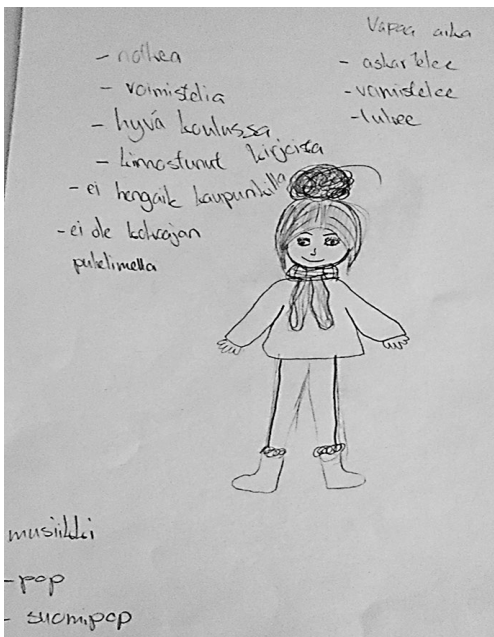 - notkea
- voimistelia
- hyvä koulussa
- kinnostunut kirjoista
- ei hengaile kaupungilla
- ei ole kokoajan
puhelimella
Vapaa aika
- askartelee
- voimistelee
- lukee
musiikki
- pop
- suomipop